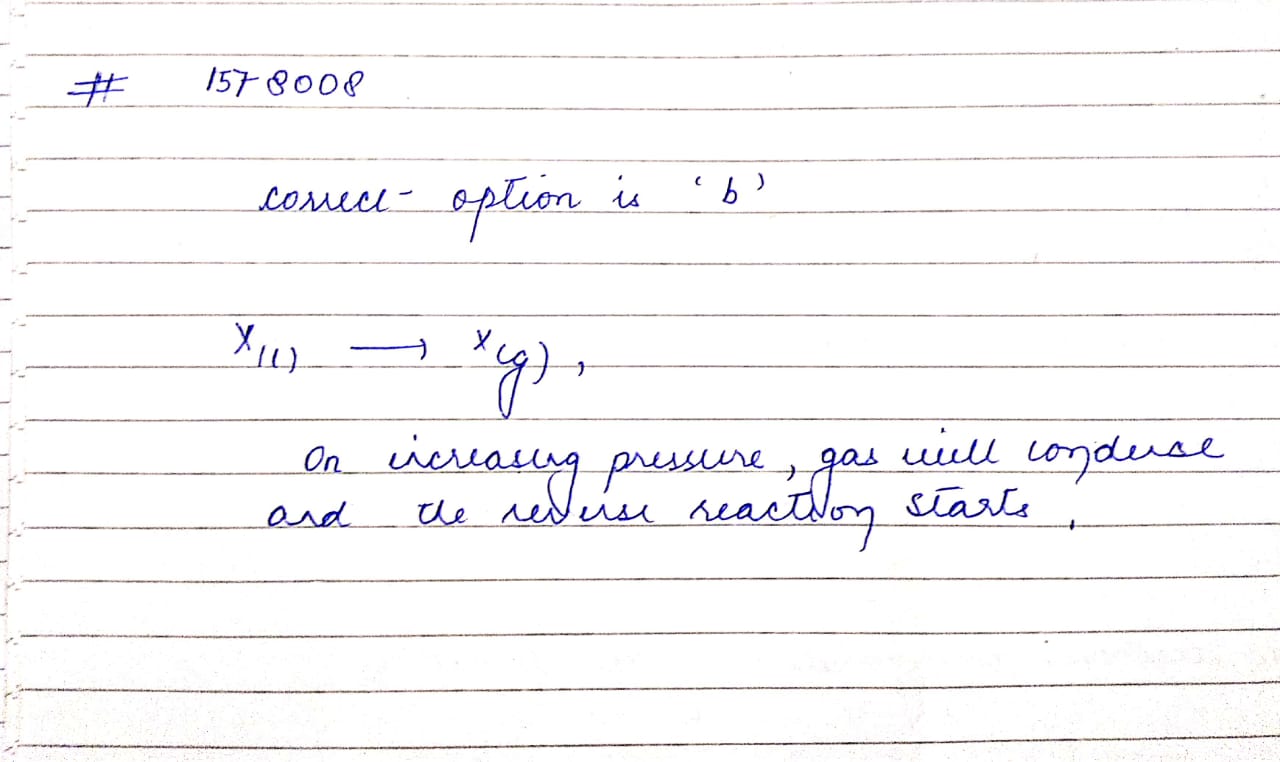 # 1578008
correct option is 'b'
X(l) → X(g),
On increasing pressure, gas will condense
and the reverse reaction starts.